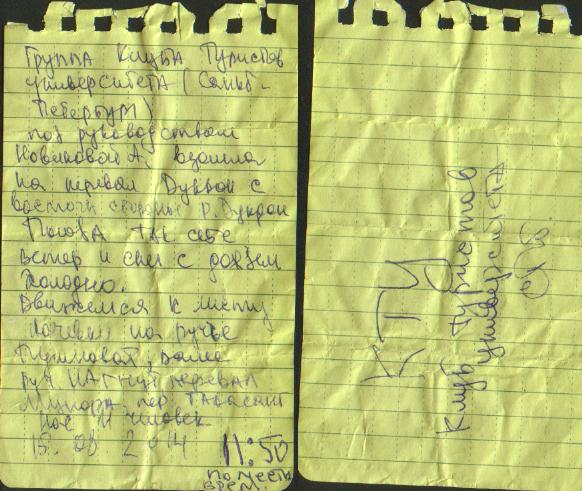 Группа Клуба Туристов
университета (Санкт-
Петербург)
под руководством
Новиковой А. взошла
на перевал Дукдон с
восточн стороны р. Дукдон
Погода так себе
ветер и снег с дождем
Холодно.
Движемся к месту
ночевки на ручье
далее
перевал
Мунора, пер. Тавасанг
Нас 11 человек
15. 08. 2014
11:50
по местн
врем.
КТУ
Клуб туристов
университета